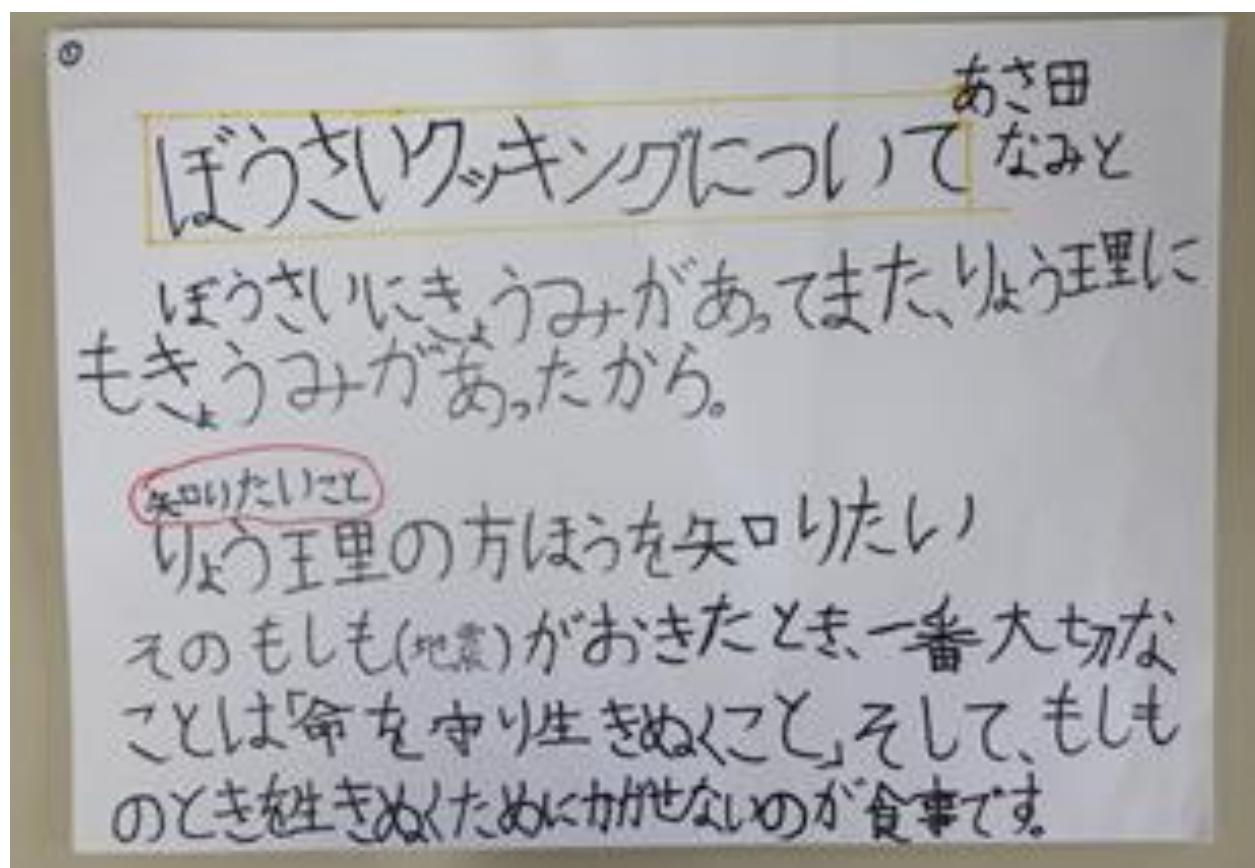 ①
あさ田
なみと
ぼうさいクッキングについて
ぼうさいにきょうみがあってまた、りょう理に
もきょうみがあったから。
知りたいこと
りょう理の方ほうを知りたい
そのもしも(地震)がおきたとき、一番大切な
ことは「命を守り生きぬくこと」そして、もしも
のときを生きぬくためにかかせないのが食事です。